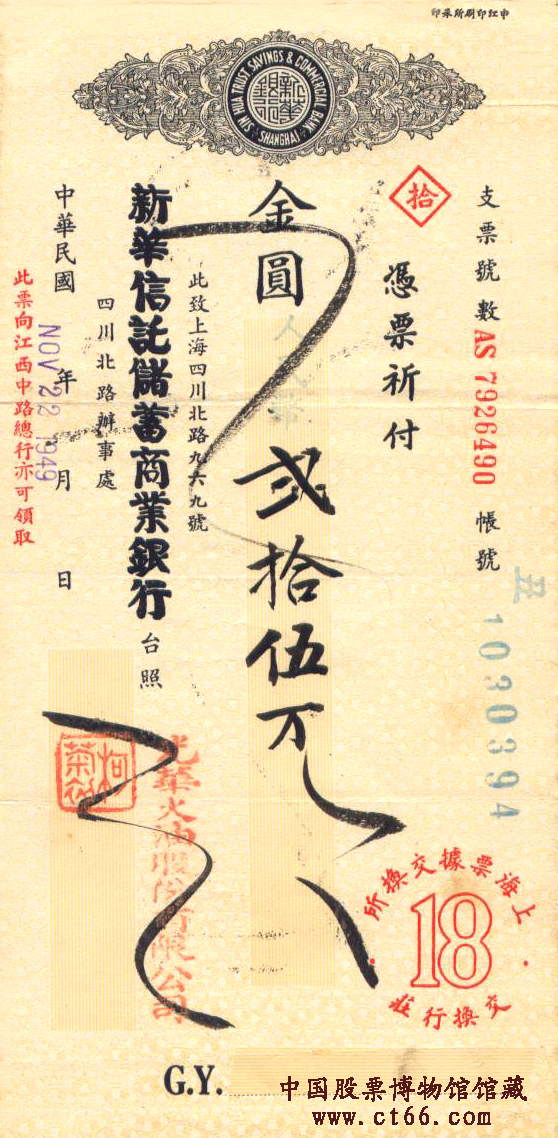 申江印刷所承印
SIN HUA TRUST SAVINGS & COMMERCIAL BANK
SHANGHAI
新華銀行
支票號數 AS 7926490 帳號
丑 1030394
拾
憑票祈付
金圓
人民幣
貳拾伍万
此致上海四川北路九六九號
新華信託儲蓄商業銀行台照
四川北路辦事處
中華民國 年 月 日
NOV 22 1949
此票向江西中路總行亦可領取
光華火油股份有限公司
上海票據交換所
18
交換行莊
G.Y.
中国股票博物馆馆藏
www.ct66.com